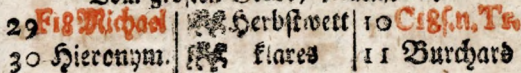 29 F18 Michael | Herbstwett | 10 C18 s. n. Tr.
30 Hieronym. | klares | 11 Burchard